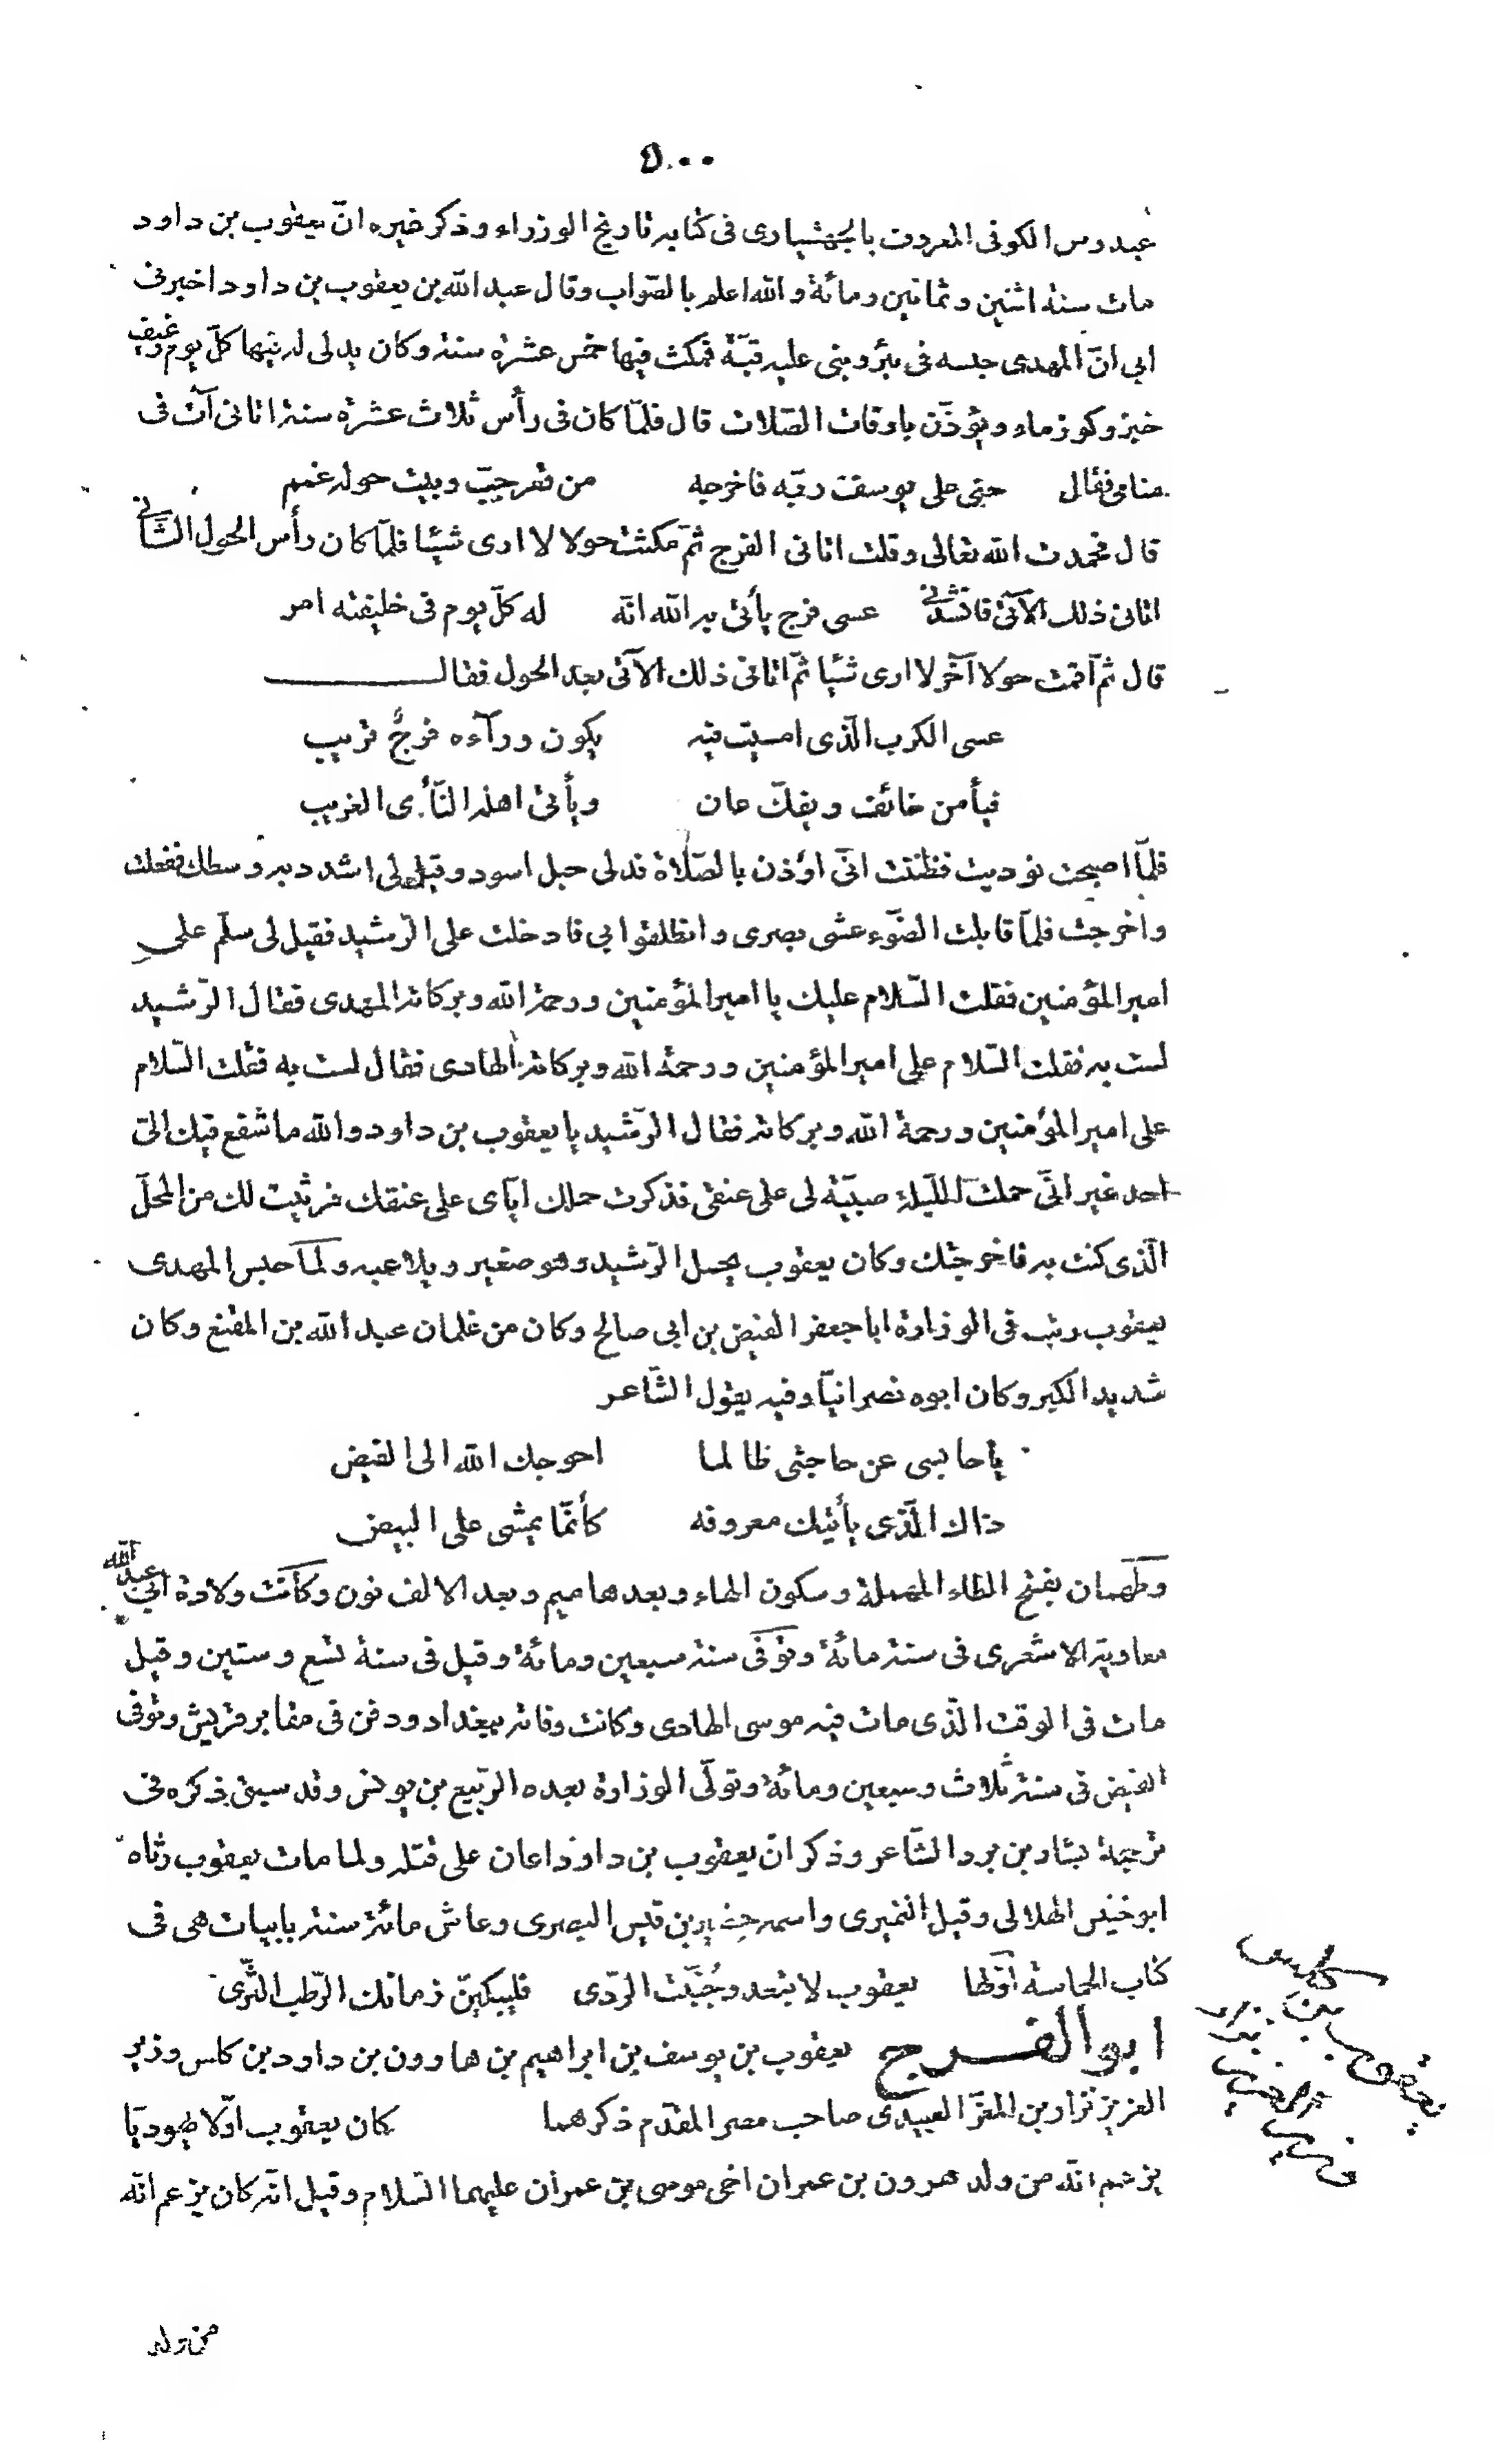 ٥٠٠
عبدوس الكوفى المعروف بالجهشيارى فى كتابه تاريخ الوزراء وذكر غيره انّ يعقوب بن داود
مات سنة اثنين وثمانين ومائة والله اعلم بالصّواب وقال عبد الله بن يعقوب بن داود اخبرنى
ابى انّ المهدى حبسه فى بئر وبنى عليه قبّة فمكث فيها خمس عشرة سنة وكان يدلى له فيها كلّ يوم رغيف
خبز وكوز ماء ويؤذّن باوقات الصّلات قال فلمّا كان فى رأس ثلاث عشرة سنة اتانى آت فى
منامى فقال حتى على يوسف ربّه فاخرجه من قعر جبّ وبيت حوله غمم
قال فحمدت الله تعالى وقلت اتانى الفرج ثمّ مكثت حولا لا ارى شيئا فلمّا كان رأس الحول الثّانى
اتانى ذلك الآتى فانشدنى عسى فرج يأتى به الله انّه له كلّ يوم فى خليقته امر
قال ثمّ اقمت حولا آخر لا ارى شيئا ثمّ اتانى ذلك الآتى بعد الحول فقال
عسى الكرب الّذى امسيت فيه يكون ورآءه فرجٌ قريب
فيأمن خائف ويفكّ عان ويأتى اهله النّأى الغريب
فلمّا اصبحت نوديت فظننت انّى اؤذن بالصّلاة فدلى حبل اسود وقيل لى اشدد به وسطك ففعلت
واخرجت فلمّا قابلت الضّوء عشى بصرى وانطلقوا بى فادخلت على الرّشيد فقيل لى سلّم على
امير المؤمنين فقلت السّلام عليك يا امير المؤمنين ورحمة الله وبركاته المهدى فقال الرّشيد
لست به فقلت السّلام على امير المؤمنين ورحمة الله وبركاته الهادى فقال لست به فقلت السّلام
على امير المؤمنين ورحمة الله وبركاته فقال الرّشيد يا يعقوب بن داود والله ما شفع فيك الىّ
احد غير انّى حملت اللّيلة صبيّة لى على عنقى فذكرت حملك ايّاى على عنقك فرثيت لك من المحلّ
الّذى كنت به فاخرجتك وكان يعقوب يحمل الرّشيد وهو صغير ويلاعبه ولمّا حبس المهدى
يعقوب رتب فى الوزارة ابا جعفر الفيض بن ابى صالح وكان من غلمان عبد الله بن المقفع وكان
شديد الكبر وكان ابوه نصرانيّا وفيه يقول الشّاعر
يا حابسى عن حاجتى ظالما احوجك الله الى الفيض
ذاك الّذى يأتيك معروفه كأنّما يمشى على البيض
وطهمان بفتح الطاء المهملة وسكون الهاء وبعدها ميم وبعد الالف نون وكانت ولادة ابى عبد الله
معاوية الاشعرى فى سنة مائة وتوفّى سنة سبعين ومائة وقيل فى سنة تسع وستين وقيل
مات فى الوقت الّذى مات فيه موسى الهادى وكانت وفاته ببغداد ودفن فى مقابر قريش وتوفى
الفيض فى سنة ثلاث وسبعين ومائة وتولّى الوزارة بعده الرّبيع بن يونس وقد سبق ذكره فى
ترجمة بشار بن برد الشّاعر وذكر انّ يعقوب بن داود اعان على قتله ولما مات يعقوب رثاه
ابو الهلالى وقيل النميرى واسمه بن قيس البصرى وعاش مائة سنة بابيات هى فى
كتاب الحماسة اوّلها يعقوب لا تبعد وجُنّبت الرّدى فليبكينّ زمانك الرّطب الثّرى
ابو الفرج يعقوب بن يوسف بن ابراهيم بن هارون بن داود بن كلس وزير
العزيز نزار بن المعزّ العبيدى صاحب مصر المقدّم ذكرهما كان يعقوب اوّلا يهوديّا
يزعم انّه من ولد هرون بن عمران اخى موسى بن عمران عليهما السّلام وقيل انّه كان يزعم انّه
من ولد
يعقوب بن كلس وزير